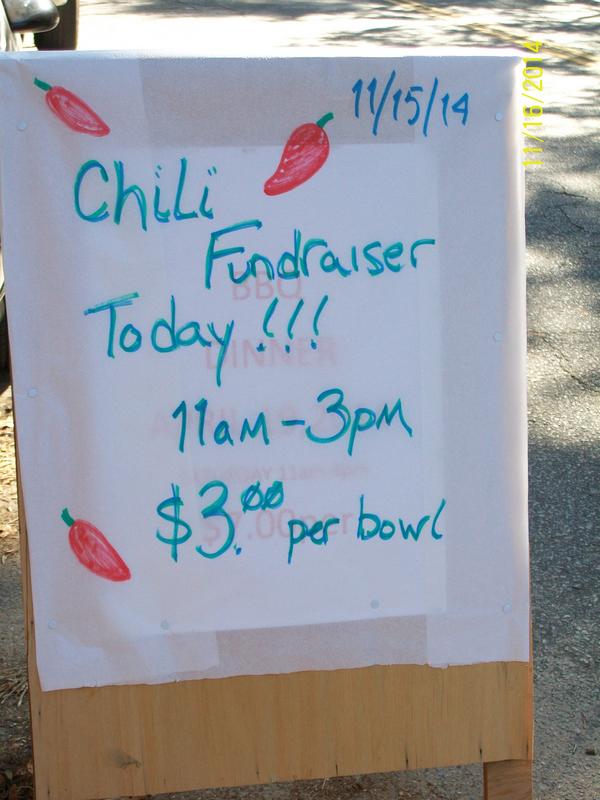 11/15/14
Chili
Fundraiser
Today!!!
11am-3pm
$3.00 per bowl
BBQ
DINNER
11am-4pm
$7.00 per
11/16/2014